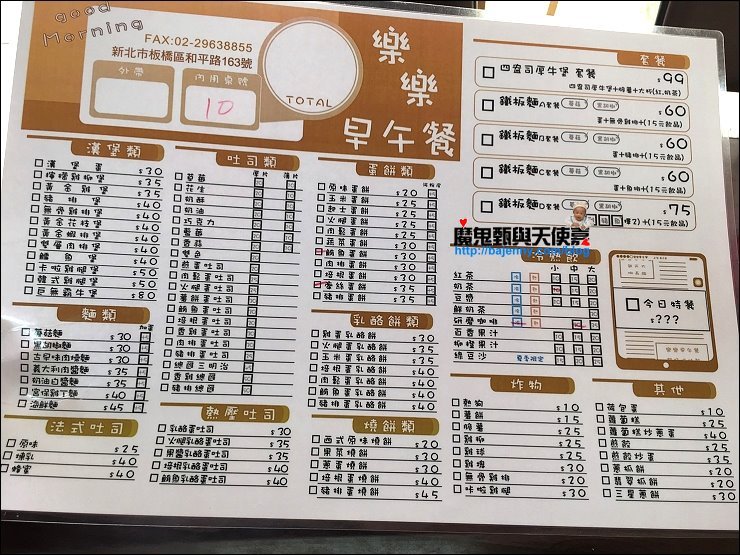 good
Morning
FAX:02-29638855
新北市板橋區和平路163號
外帶
內用桌號
10
TOTAL
樂樂
早午餐
漢堡類
漢堡蛋 $30
檸檬雞柳堡 $35
黃金雞堡 $35
豬排堡 $40
無骨雞排堡 $40
黃金花枝堡 $40
黃金蝦排堡 $40
雙層肉排堡 $40
鱈魚堡 $40
卡啦雞腿堡 $50
韓式雞腿堡 $50
巨無霸牛堡 $80
麵類
加蛋
蘑菇麵 $30
黑胡椒麵 $30
古早味肉燥麵 $35
義大利肉醬麵 $35
奶油白醬麵 $35
宮保雞丁麵 $40
海鮮麵 $45
法式吐司
原味 $25
煉乳 $40
蜂蜜 $40
吐司類
厚片
薄片
草莓
花生
奶酥
奶油
巧克力
藍莓
香蒜
雙色
煎蛋吐司
肉鬆蛋吐司
火腿蛋吐司
薯餅蛋吐司
鮪魚蛋吐司
培根蛋吐司
香雞蛋吐司
肉排蛋吐司
豬排蛋吐司
總匯三明治
香雞總匯
豬排總匯
熱壓吐司
乳酪蛋吐司 $30
火腿乳酪蛋吐司 $35
果醬乳酪蛋吐司 $35
培根乳酪蛋吐司 $40
鮪魚乳酪蛋吐司 $40
蛋餅類
原味蛋餅 $20
玉米蛋餅 $25
起士蛋餅 $25
火腿蛋餅 $25
肉鬆蛋餅 $25
蔬菜蛋餅 $30
鮪魚蛋餅 $30
肉排蛋餅 $30
培根蛋餅 $30
香絲蛋餅 $35
豬排蛋餅 $35
乳酪餅類
乳酪蛋餅 $30
火腿蛋乳酪餅 $35
玉米蛋乳酪餅 $35
肉鬆蛋乳酪餅 $35
鮪魚蛋乳酪餅 $40
培根蛋乳酪餅 $40
香雞蛋乳酪餅 $40
豬排蛋乳酪餅 $45
燒餅類
西式原味燒餅 $20
果菜燒餅 $30
蔥蛋燒餅 $30
培根蛋燒餅 $40
鮪魚蛋燒餅 $40
豬排蛋燒餅 $45
套餐
四盎司厚牛堡 套餐 $99
四盎司厚牛堡+脆薯+大杯(紅.奶茶)
鐵板麵A套餐 蘑菇 黑胡椒 $60
蛋+無骨雞排+(15元飲品)
鐵板麵B套餐 蘑菇 黑胡椒 $60
蛋+豬排+(15元飲品)
鐵板麵C套餐 蘑菇 黑胡椒 $60
蛋+魚排+(15元飲品)
鐵板麵D套餐 $75
2)+(15元飲品)
魔鬼甄與天使嘉
冷熱飲
小 中 大
紅茶
奶茶
豆漿
鮮奶茶
研磨咖啡
百香果汁
柳橙果汁
綠豆沙 夏季限定
今日時餐
$???
炸物
熱狗 $10
薯餅 $15
脆薯 $25
雞柳 $25
雞球 $25
雞塊 $30
無骨雞排 $30
卡啦雞腿 $30
其他
荷包蛋 $10
蘿蔔糕 $25
蘿蔔糕炒蔥蛋 $40
煎餃 $25
煎餃炒蛋 $35
蔥抓餅 $30
翡翠抓餅 $30
三星蔥餅 $30